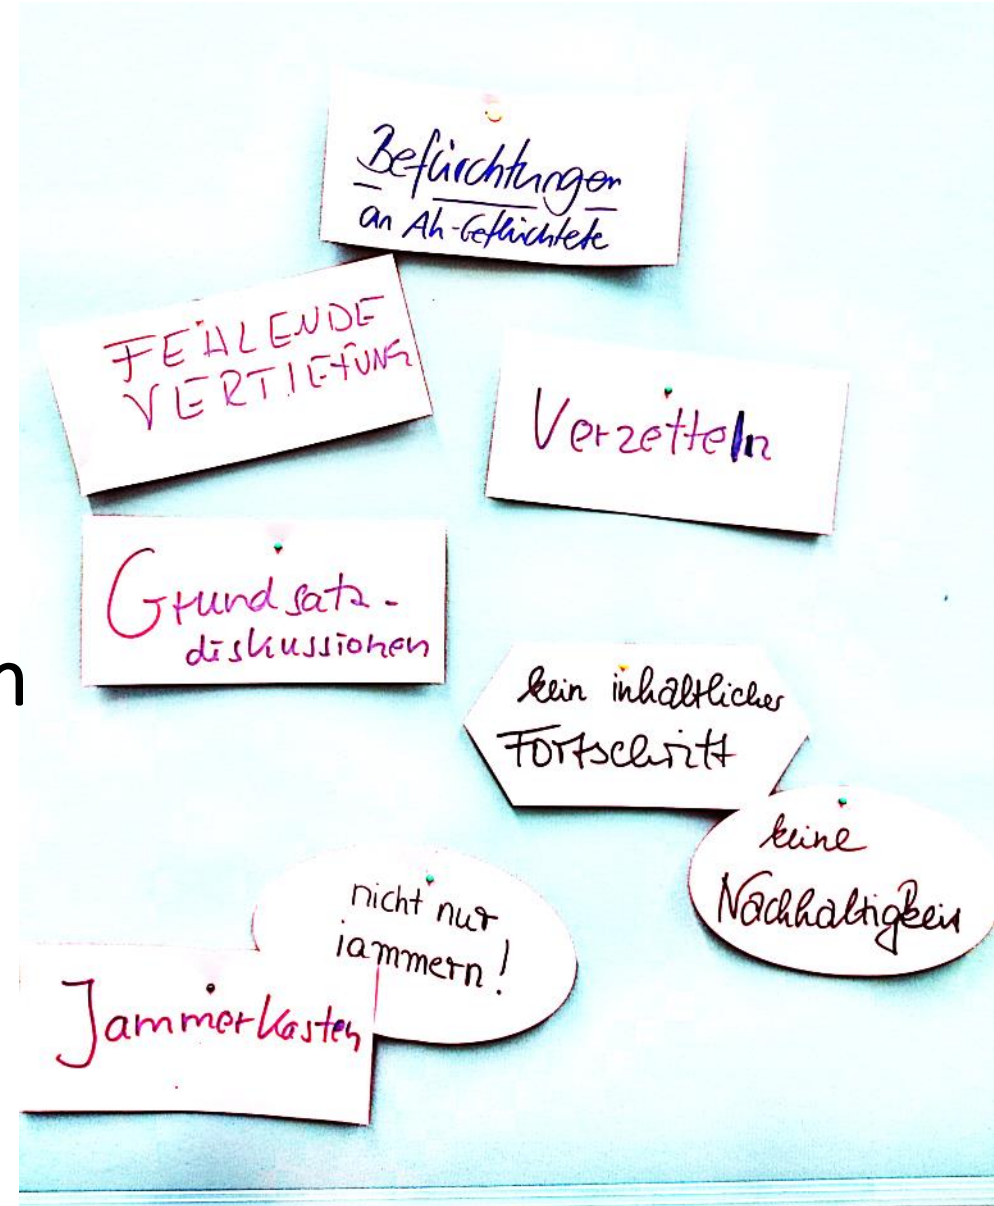 Befürchtungen
an AK-Geflüchtete
FEHLENDE
VERTIEFUNG
Verzetteln
Grundsatz-
diskussionen
n
kein inhaltlicher
Fortschritt
keine
Nachhaltigkeit
nicht nur
jammern!
Jammerkasten